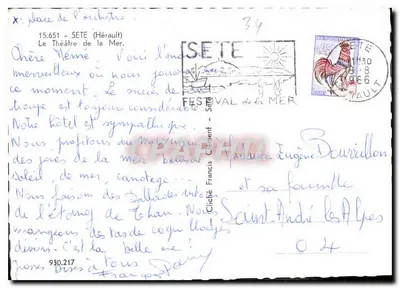 x: place de l'orchestre
34
15.651 - SETE (Hérault)
Le Théâtre de la Mer.
Chère Mémé. Voici l'endroit
merveilleux où nous jouons
ce moment. Le succès de
est toujours considérable
Notre hôtel est sympathique.
Nous profitons au maximum
des joies de la mer baignades
soleil de mer canotage...
Nous faisons des ballades
de l'étang de Thau. Nous
mangeons des tas de coquillages
divers. C'est la belle vie!
Grosses bises à tous
François
930.217
© Cliché Francis Clément - Sète
SETE
FESTIVAL de la MER
SETE
11H30
8-8
1966
HERAULT
Eugène
et sa famille
Saint-André les Alpes
04